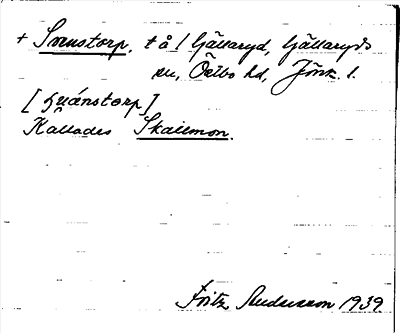 + Svenstorp, t å / Gällaryd, Gällaryds
sn, Östbo hd, Jönk. l.
[svänstorp]
Kallades Skaiemon.
Fritz Andersson 1939.